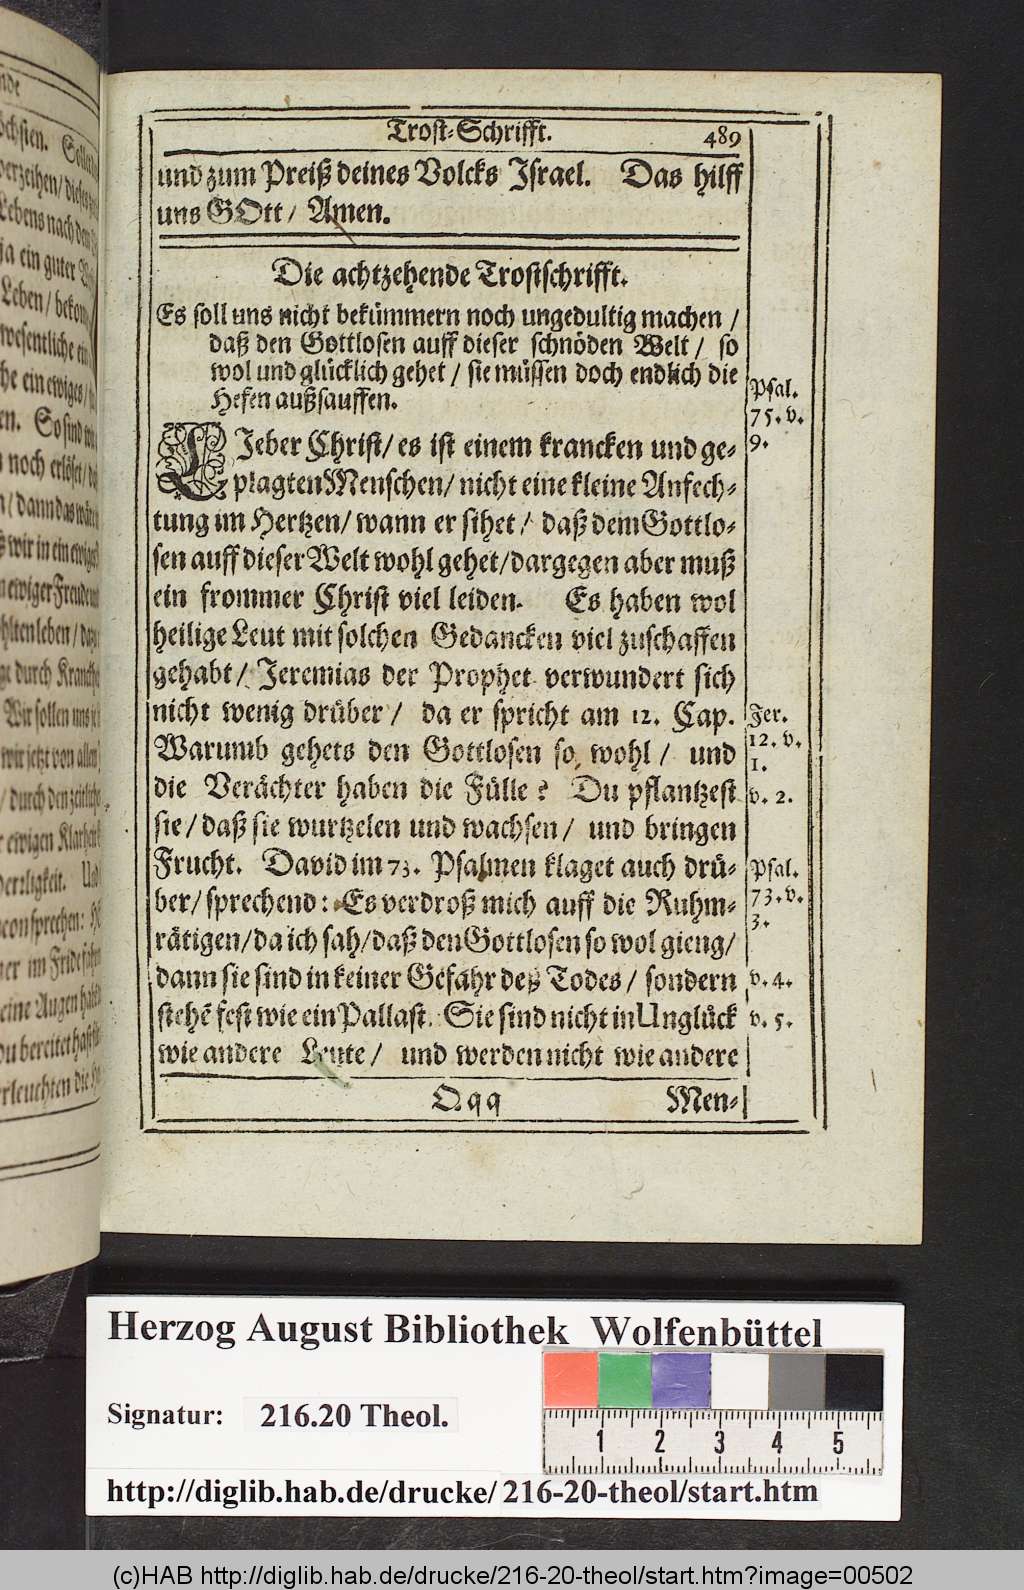 Trost-Schrifft. 489
und zum Preiß deines Volcks Israel. Das hilff
uns GOtt / Amen.
Die achtzehende Trostschrifft.
Es soll uns nicht bekümmern noch ungedultig machen /
daß den Gottlosen auff dieser schnöden Welt / so
wol und glücklich gehet / sie müssen doch endlich die
Hefen außsauffen.
LIeber Christ / es ist einem krancken und ge-
plagten Menschen / nicht eine kleine Anfech-
tung im Hertzen / wann er sihet / daß dem Gottlo-
sen auff dieser Welt wohl gehet / dargegen aber muß
ein frommer Christ viel leiden. Es haben wol
heilige Leut mit solchen Gedancken viel zuschaffen
gehabt / Jeremias der Prophet verwundert sich
nicht wenig drüber / da er spricht am 12. Cap.
Warumb gehets den Gottlosen so wohl / und
die Verächter haben die Fülle? Du pflantzest
sie / daß sie wurtzelen und wachsen / und bringen
Frucht. David im 73. Psalmen klaget auch drü-
ber / sprechend: Es verdroß mich auff die Ruhm-
rätigen / da ich sah / daß den Gottlosen so wol gieng /
dann sie sind in keiner Gefahr deß Todes / sondern
stehẽ fest wie ein Pallast. Sie sind nicht in Unglück
wie andere Leute / und werden nicht wie andere
Qqq Men-
Psal.
75. v.
9.
Jer.
12. v.
1.
v. 2.
Psal.
73. v.
3.
v. 4.
v. 5.
Herzog August Bibliothek Wolfenbüttel
Signatur: 216.20 Theol.
1 2 3 4 5
http://diglib.hab.de/drucke/216-20-theol/start.htm
(c)HAB http://diglib.hab.de/drucke/216-20-theol/start.htm?image=00502